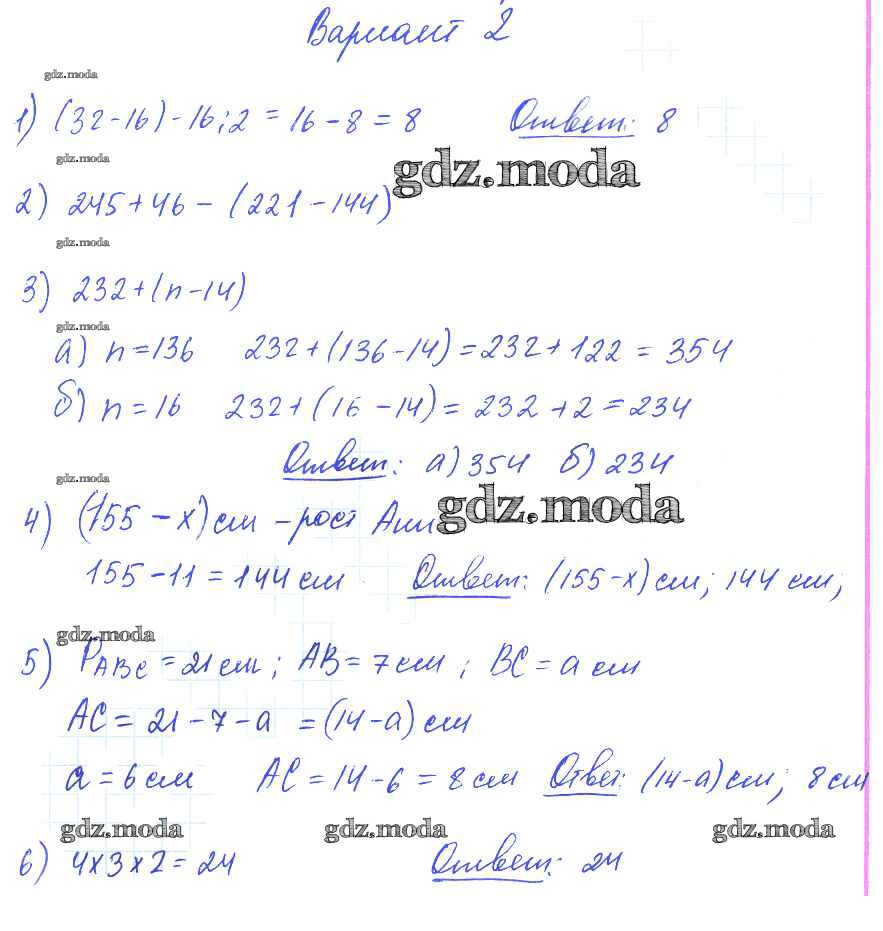 Вариант 2
gdz.moda
1) (32-16)-16:2 = 16-8 = 8 Ответ: 8
gdz.moda
gdz.moda
2) 245+46 - (221-144)
gdz.moda
3) 232+(n-14)
gdz.moda
а) n=136 232+(136-14)=232+122 = 354
б) n=16 232+(16-14)= 232+2=234
Ответ: а) 354 б) 234
gdz.moda
gdz.moda
4) (155-x) см - рост Ани
155-11=144 см Ответ: (155-x) см; 144 см;
gdz.moda
5) PABC = 21 см; AB = 7 см; BC = a см
AC = 21-7-a = (14-a) см
a = 6 см AC = 14-6 = 8 см Ответ: (14-a) см; 8 см
gdz.moda gdz.moda gdz.moda
6) 4x3x2=24 Ответ: 24